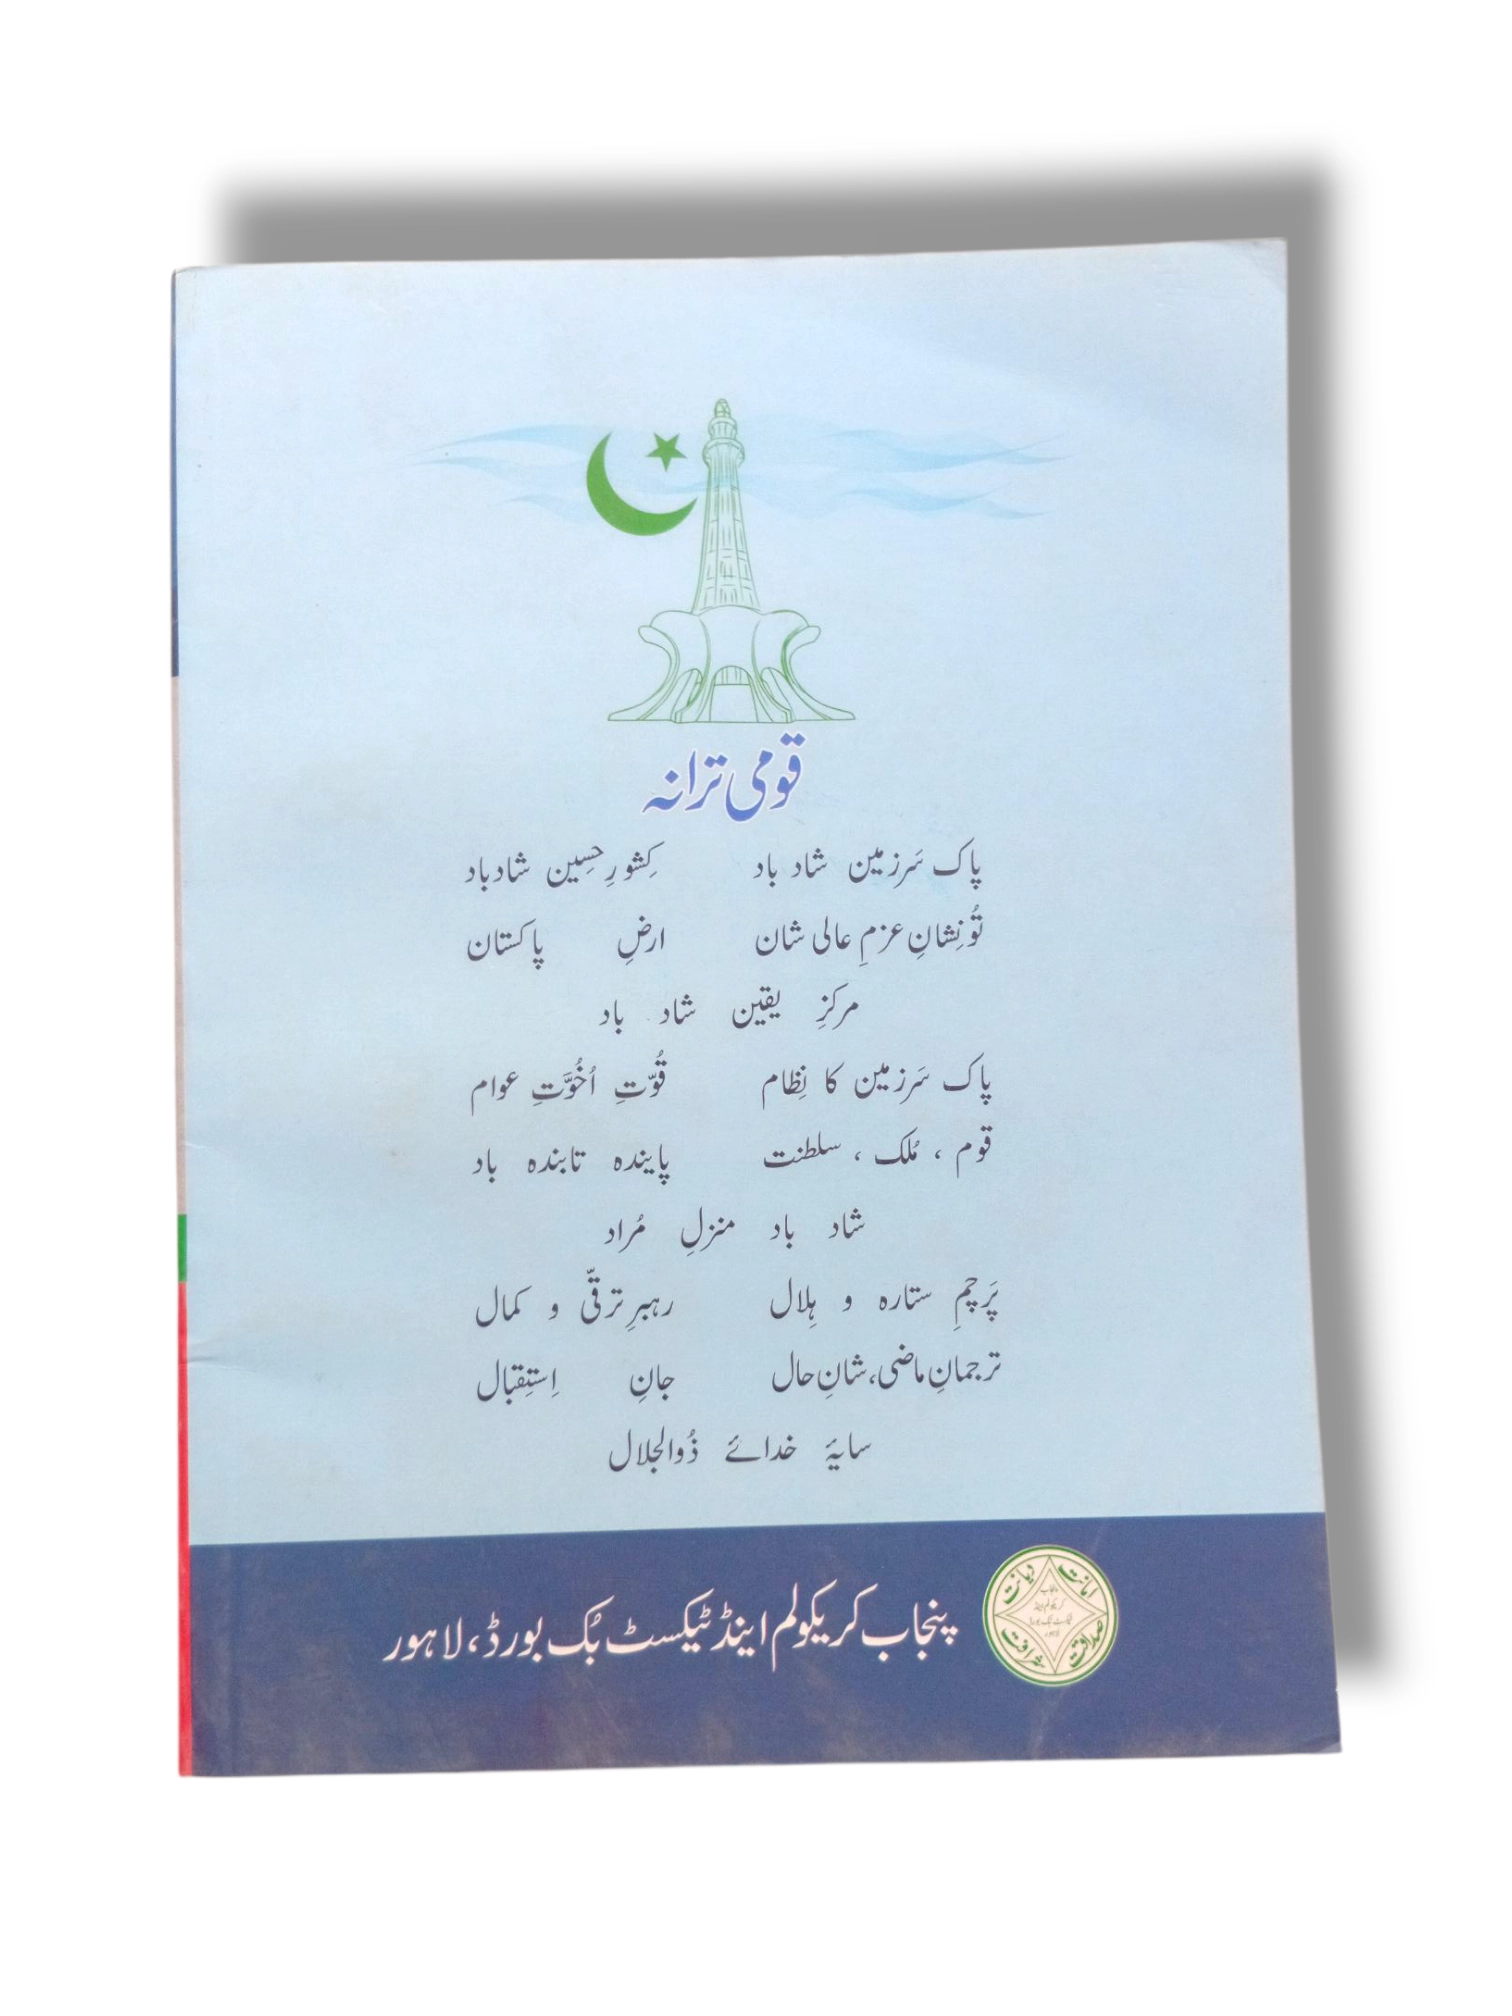 قومی ترانہ
پاک سَرزمین شاد باد کِشورِ حسِین شاد باد
تُو نِشانِ عزمِ عالی شان ارضِ پاکستان
مرکزِ یقین شاد باد
پاک سَرزمین کا نِظام قُوّتِ اُخُوَّتِ عوام
قوم ، مُلک ، سلطنت پایندہ تابندہ باد
شاد باد منزلِ مُراد
پَرچمِ ستارہ و ہِلال رہبرِ ترقّی و کمال
ترجمانِ ماضی، شانِ حال جانِ اِستِقبال
سایۂ خدائے ذُوالجلال
پنجاب کریکولم اینڈ ٹیکسٹ بُک بورڈ، لاہور
امانت
دیانت
صداقت
شرافت
پنجاب
کریکولم اینڈ
ٹیکسٹ بک بورڈ
لاہور